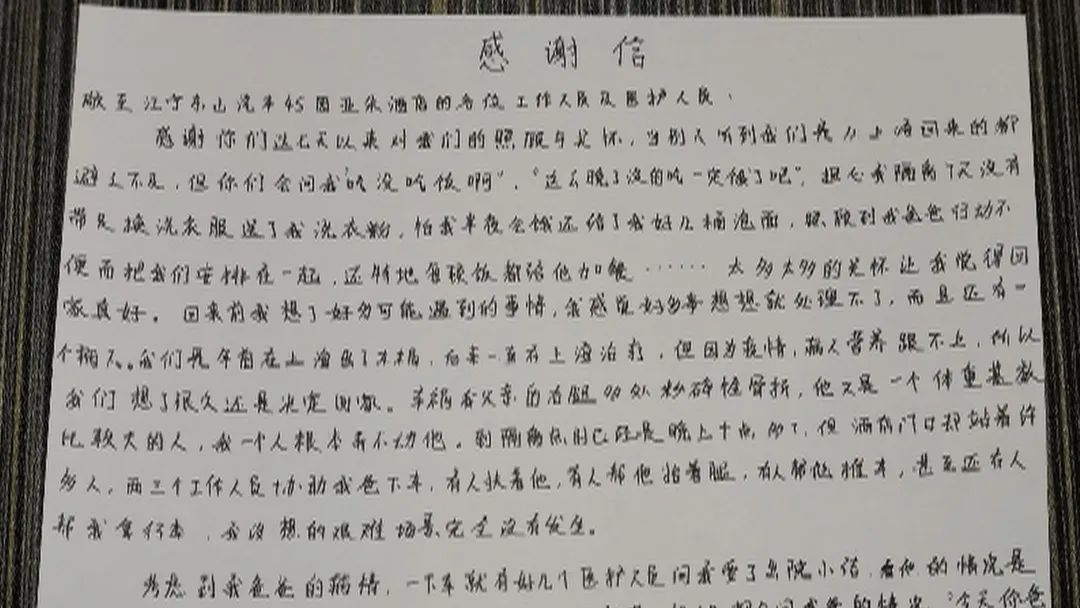 感谢信
致至江宁东山汽车45园亚朵酒店的各位工作人员及医护人员：
感谢你们这七天以来对我们的照顾与关怀，当别人听到我们是从上海回来的都
避之不及，但你们会问我"吃没吃饭啊"，"这么晚了没的吃一定饿了吧"，担心我隔离7天没有
带足换洗衣服送了我洗衣粉，怕我半夜会饿还给了我好几桶泡面，照顾到我爸爸行动不
便而把我们安排在一起，还特地每顿饭都给他加餐……太多太多的关怀让我觉得回
家真好。回来前我想了好多可能遇到的事情，我感觉好多事想想就处理不了，而且还有一
个病人。我们是年前在上海出了车祸，后来一直在上海治疗，但因为疫情，病人营养跟不上，所以
我们想了很久还是决定回家。车祸致父亲的右腿多处粉碎性骨折，他又是一个体重基数
比较大的人，我一个人根本弄不动他。到隔离点时已经是晚上十点多了，但酒店门口却站着许
多人，两三个工作人员协助我爸下车，有人扶着他，有人帮他抬着腿，有人帮他推车，甚至还有人
帮我拿行李，我设想的艰难场景完全没有发生。
考虑到我爸爸的病情，一下车就有好几个医护人员问我要了出院小结，看他的情况是